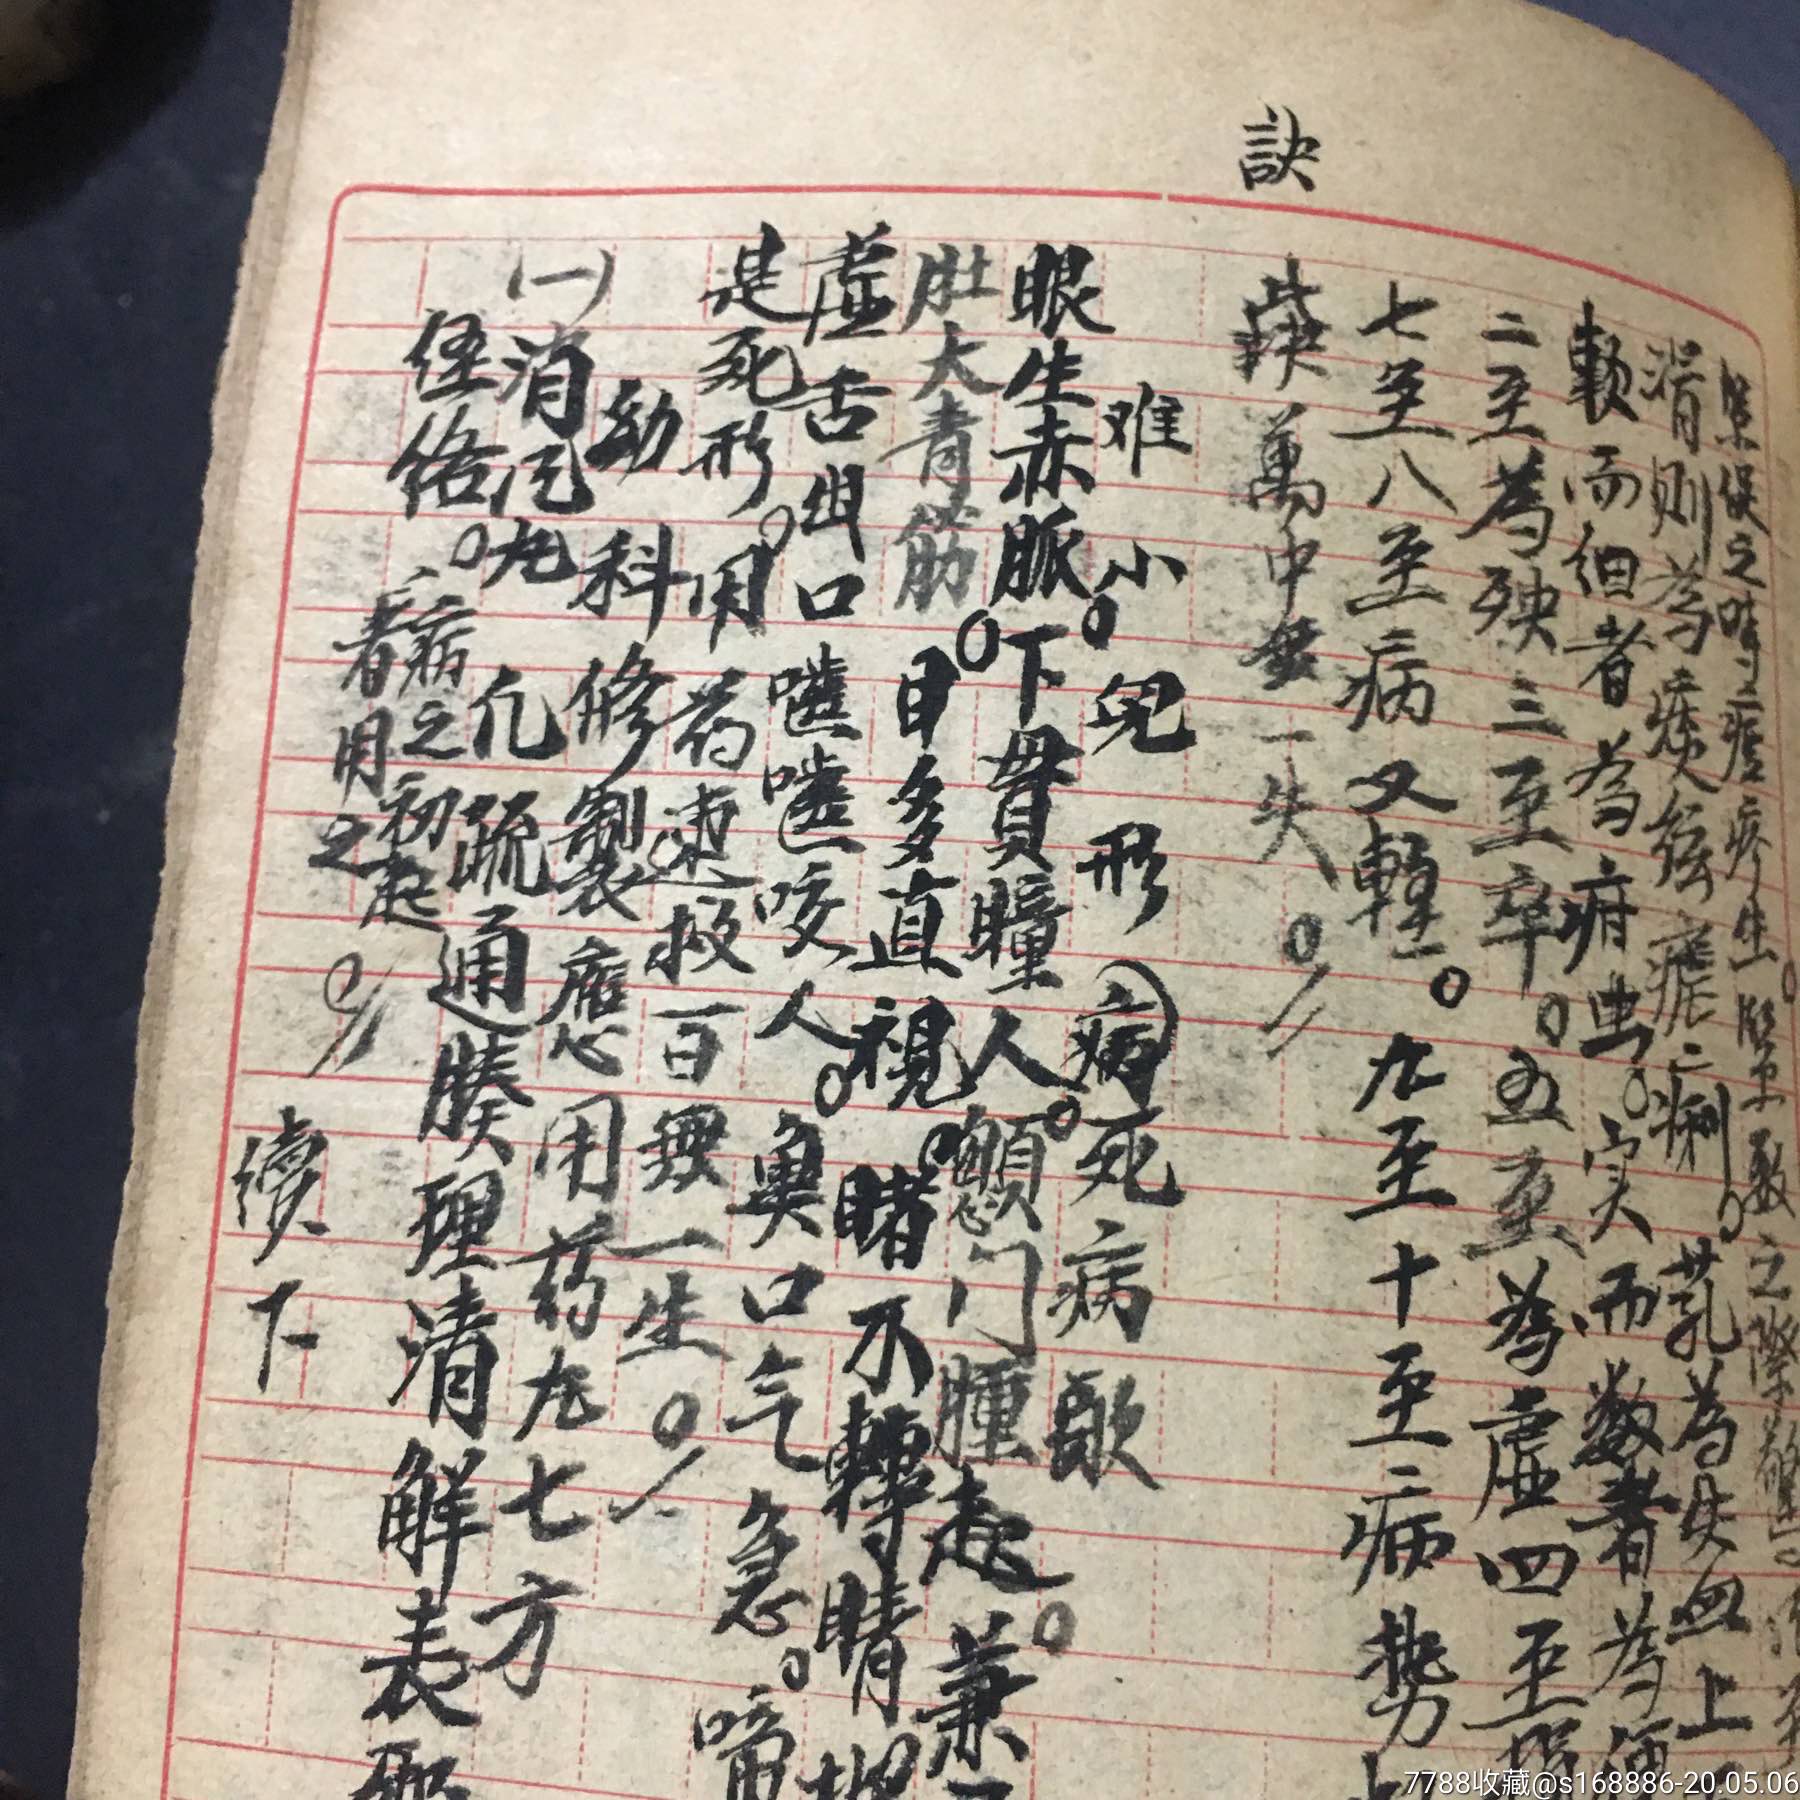 訣
緊促之時是痘疹生。緊數之際驚
滑則為痰弦瘧亡痢。芤為失血上
軟而細者為疳虫。实而数者為
二至為殃三至卒。五至為虛四至
七至八至病又輕。九至十至病势
萬中無一失。
难小。兒形病死病歌
眼生赤脈。下貫瞳人。顖门腫起。兼
肚大青筋。目多直視。睹不轉睛
虛舌出口囓囓咬人。鼻口气急。啼
是死形。用药速救百無一生。
幼科修製應用药丸七方
(一)消風丸 凡疏通腠理清解表邪
经络。病之初起
者用之
續下
7788收藏@s168886-20.05.06